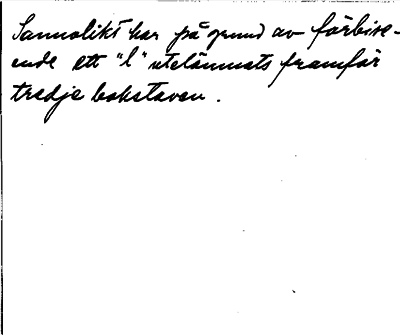 Sannolikt har på grund av förbise-
ende ett "l" utelämnats framför
tredje bokstaven.